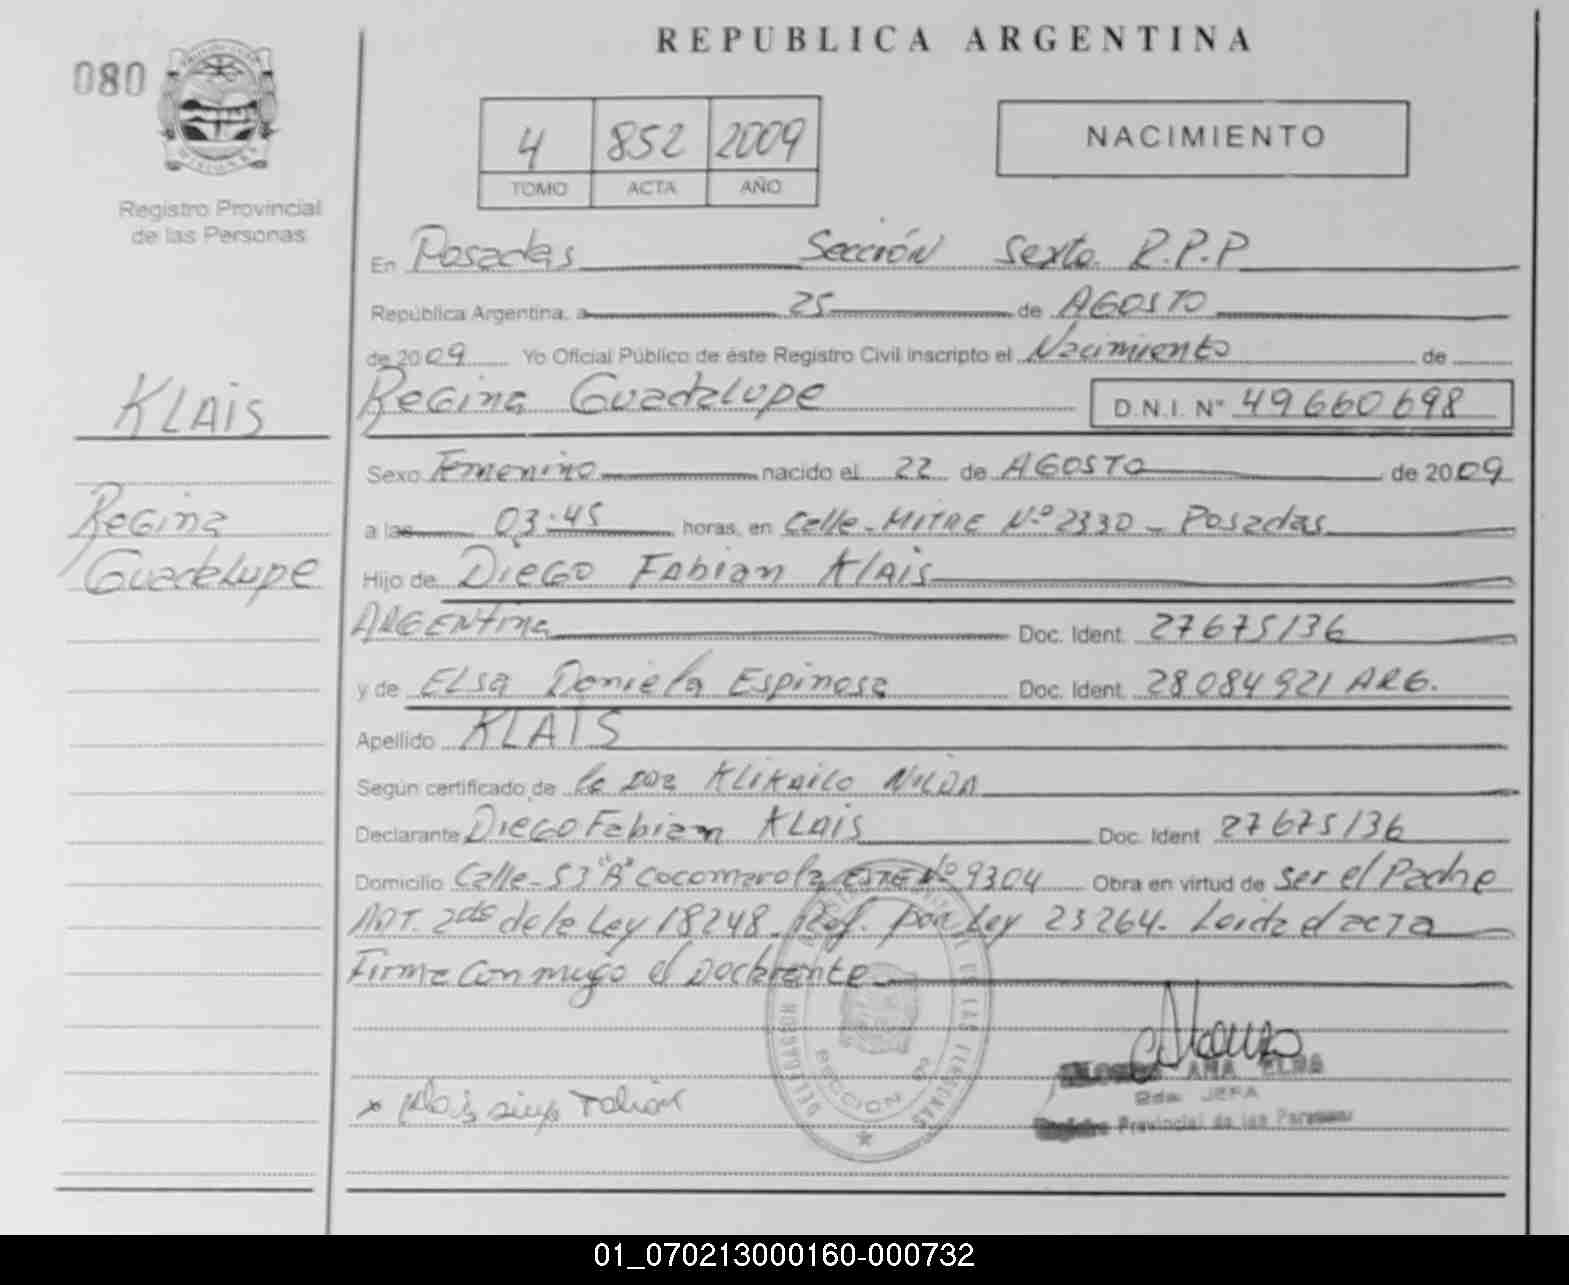 REPUBLICA ARGENTINA
080
4 852 2009
TOMO ACTA AÑO
NACIMIENTO
Registro Provincial
de las Personas
En Posadas Sección Sexta R.P.P
República Argentina, a 25 de AGOSTO
de 2009 Yo Oficial Público de éste Registro Civil inscripto el Nacimiento de
KLAIS
Regina Guadalupe D.N.I. N° 49660698
Sexo Femenino nacido el 22 de AGOSTO de 2009
Regina
a las 03:45 horas, en Calle-MITRE Nº 2330 - Posadas
Guadelupe
Hijo de Diego Fabian Klais
ARGENTINA Doc. Ident. 27675136
y de ELSA Daniela Espinosa Doc. Ident. 28084921 ARG.
Apellido KLAIS
Según certificado de la NILDA
Declarante Diego Fabian KLAIS Doc. Ident 27675136
Domicilio Calle-53"B" Cocomarola ESTE Nº 9304 Obra en virtud de ser el Padre
ART. 2do de la Ley 18248. Ref. por Ley 23264. Leida el acta
Firma Conmigo el Declarante
SECCION
ANA ELBA
JEFA
Registro Provincial de las Personas
01_070213000160-000732